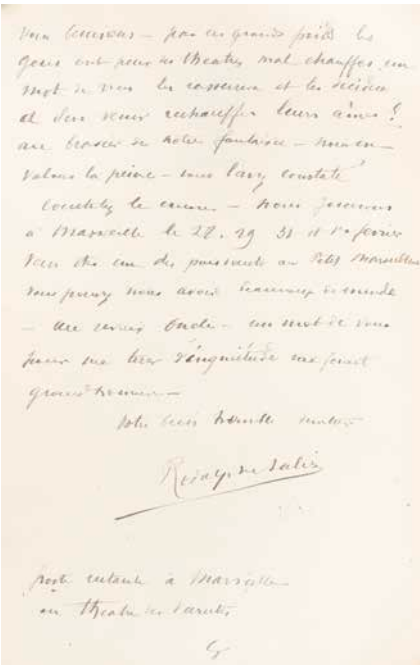 Vous - par ces grands froids les
gens ont peur des theatres mal chauffés, un
mot de vous les rassurera et les décidera
et d'en venir rechauffer leurs âmes
au brasier de notre fantaisie - nous en
valons la peine - vous l'avez constaté
le encore - Nous jouerons
à Marseille le 28. 29 31 et 1er février
des puissants au Petit Marseillais
vous pouvez nous avoir beaucoup de monde
- un mot de vous
pour me tirer d'inquiétude me ferait
grand honneur -
Votre bien humble
Rodolphe Salis
poste restante à Marseille
au theatre des Variétés